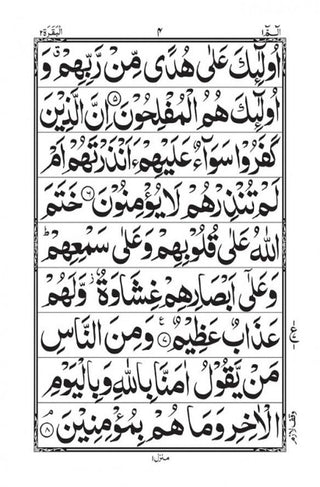 الٓمّٓ ١ ٤ البقرة ٢
اُولٰٓئِكَ عَلٰى هُدًى مِّنْ رَّبِّهِمْ ۗ وَ
اُولٰٓئِكَ هُمُ الْمُفْلِحُوْنَ ۝٥ اِنَّ الَّذِيْنَ
كَفَرُوْا سَوَآءٌ عَلَيْهِمْ ءَاَنْذَرْتَهُمْ اَمْ
لَمْ تُنْذِرْهُمْ لَا يُؤْمِنُوْنَ ۝٦ خَتَمَ
اللّٰهُ عَلٰى قُلُوْبِهِمْ وَعَلٰى سَمْعِهِمْ ؕ
وَعَلٰٓى اَبْصَارِهِمْ غِشَاوَةٌ ۫ وَّلَهُمْ
عَذَابٌ عَظِيْمٌ ۝٧ وَمِنَ النَّاسِ
مَنْ يَّقُوْلُ اٰمَنَّا بِاللّٰهِ وَبِالْيَوْمِ
الْاٰخِرِ وَمَا هُمْ بِمُؤْمِنِيْنَ ۝٨
ع
وقف لازم
منزل ١